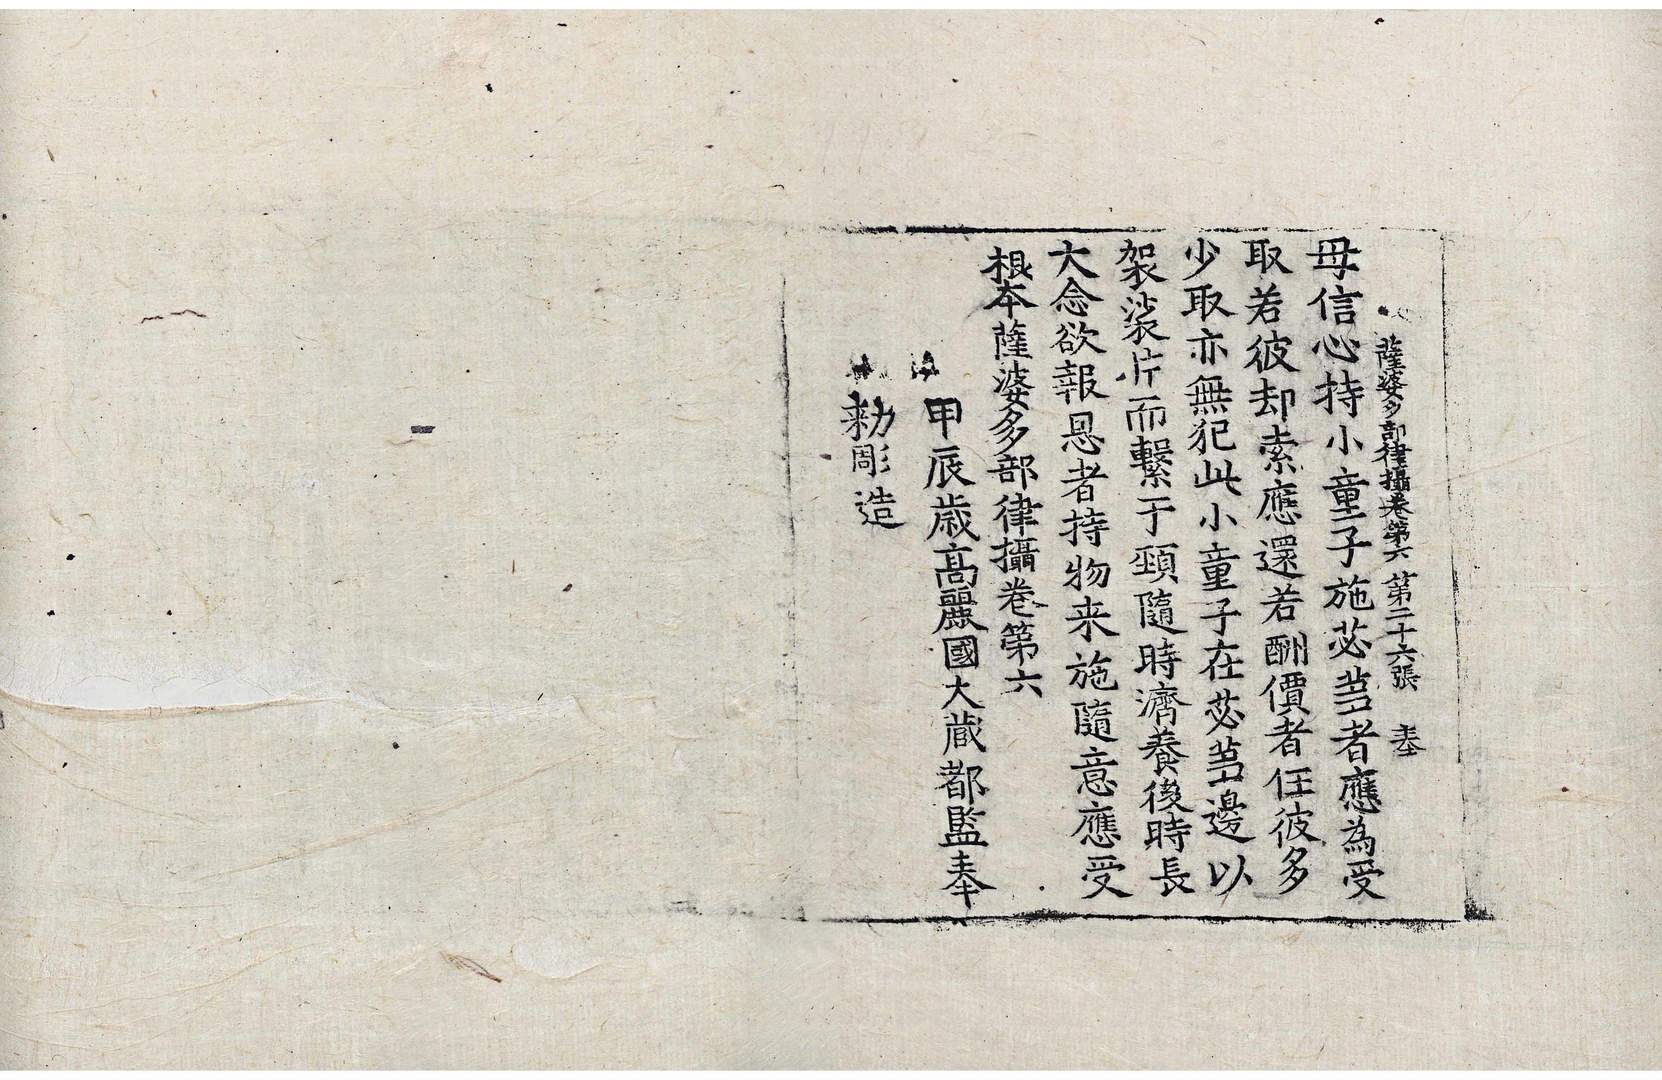 薩婆多部律攝卷第六 第二十六張
母信心持小童子施苾芻者應為受
取若彼却索應還若酬價者任彼多
少取亦無犯此小童子在苾芻邊以
袈裟片而繫于頸隨時濟養後時長
大念欲報恩者持物来施隨意應受
根本薩婆多部律攝卷第六
甲辰歳高麗國大蔵都監奉
勑彫造